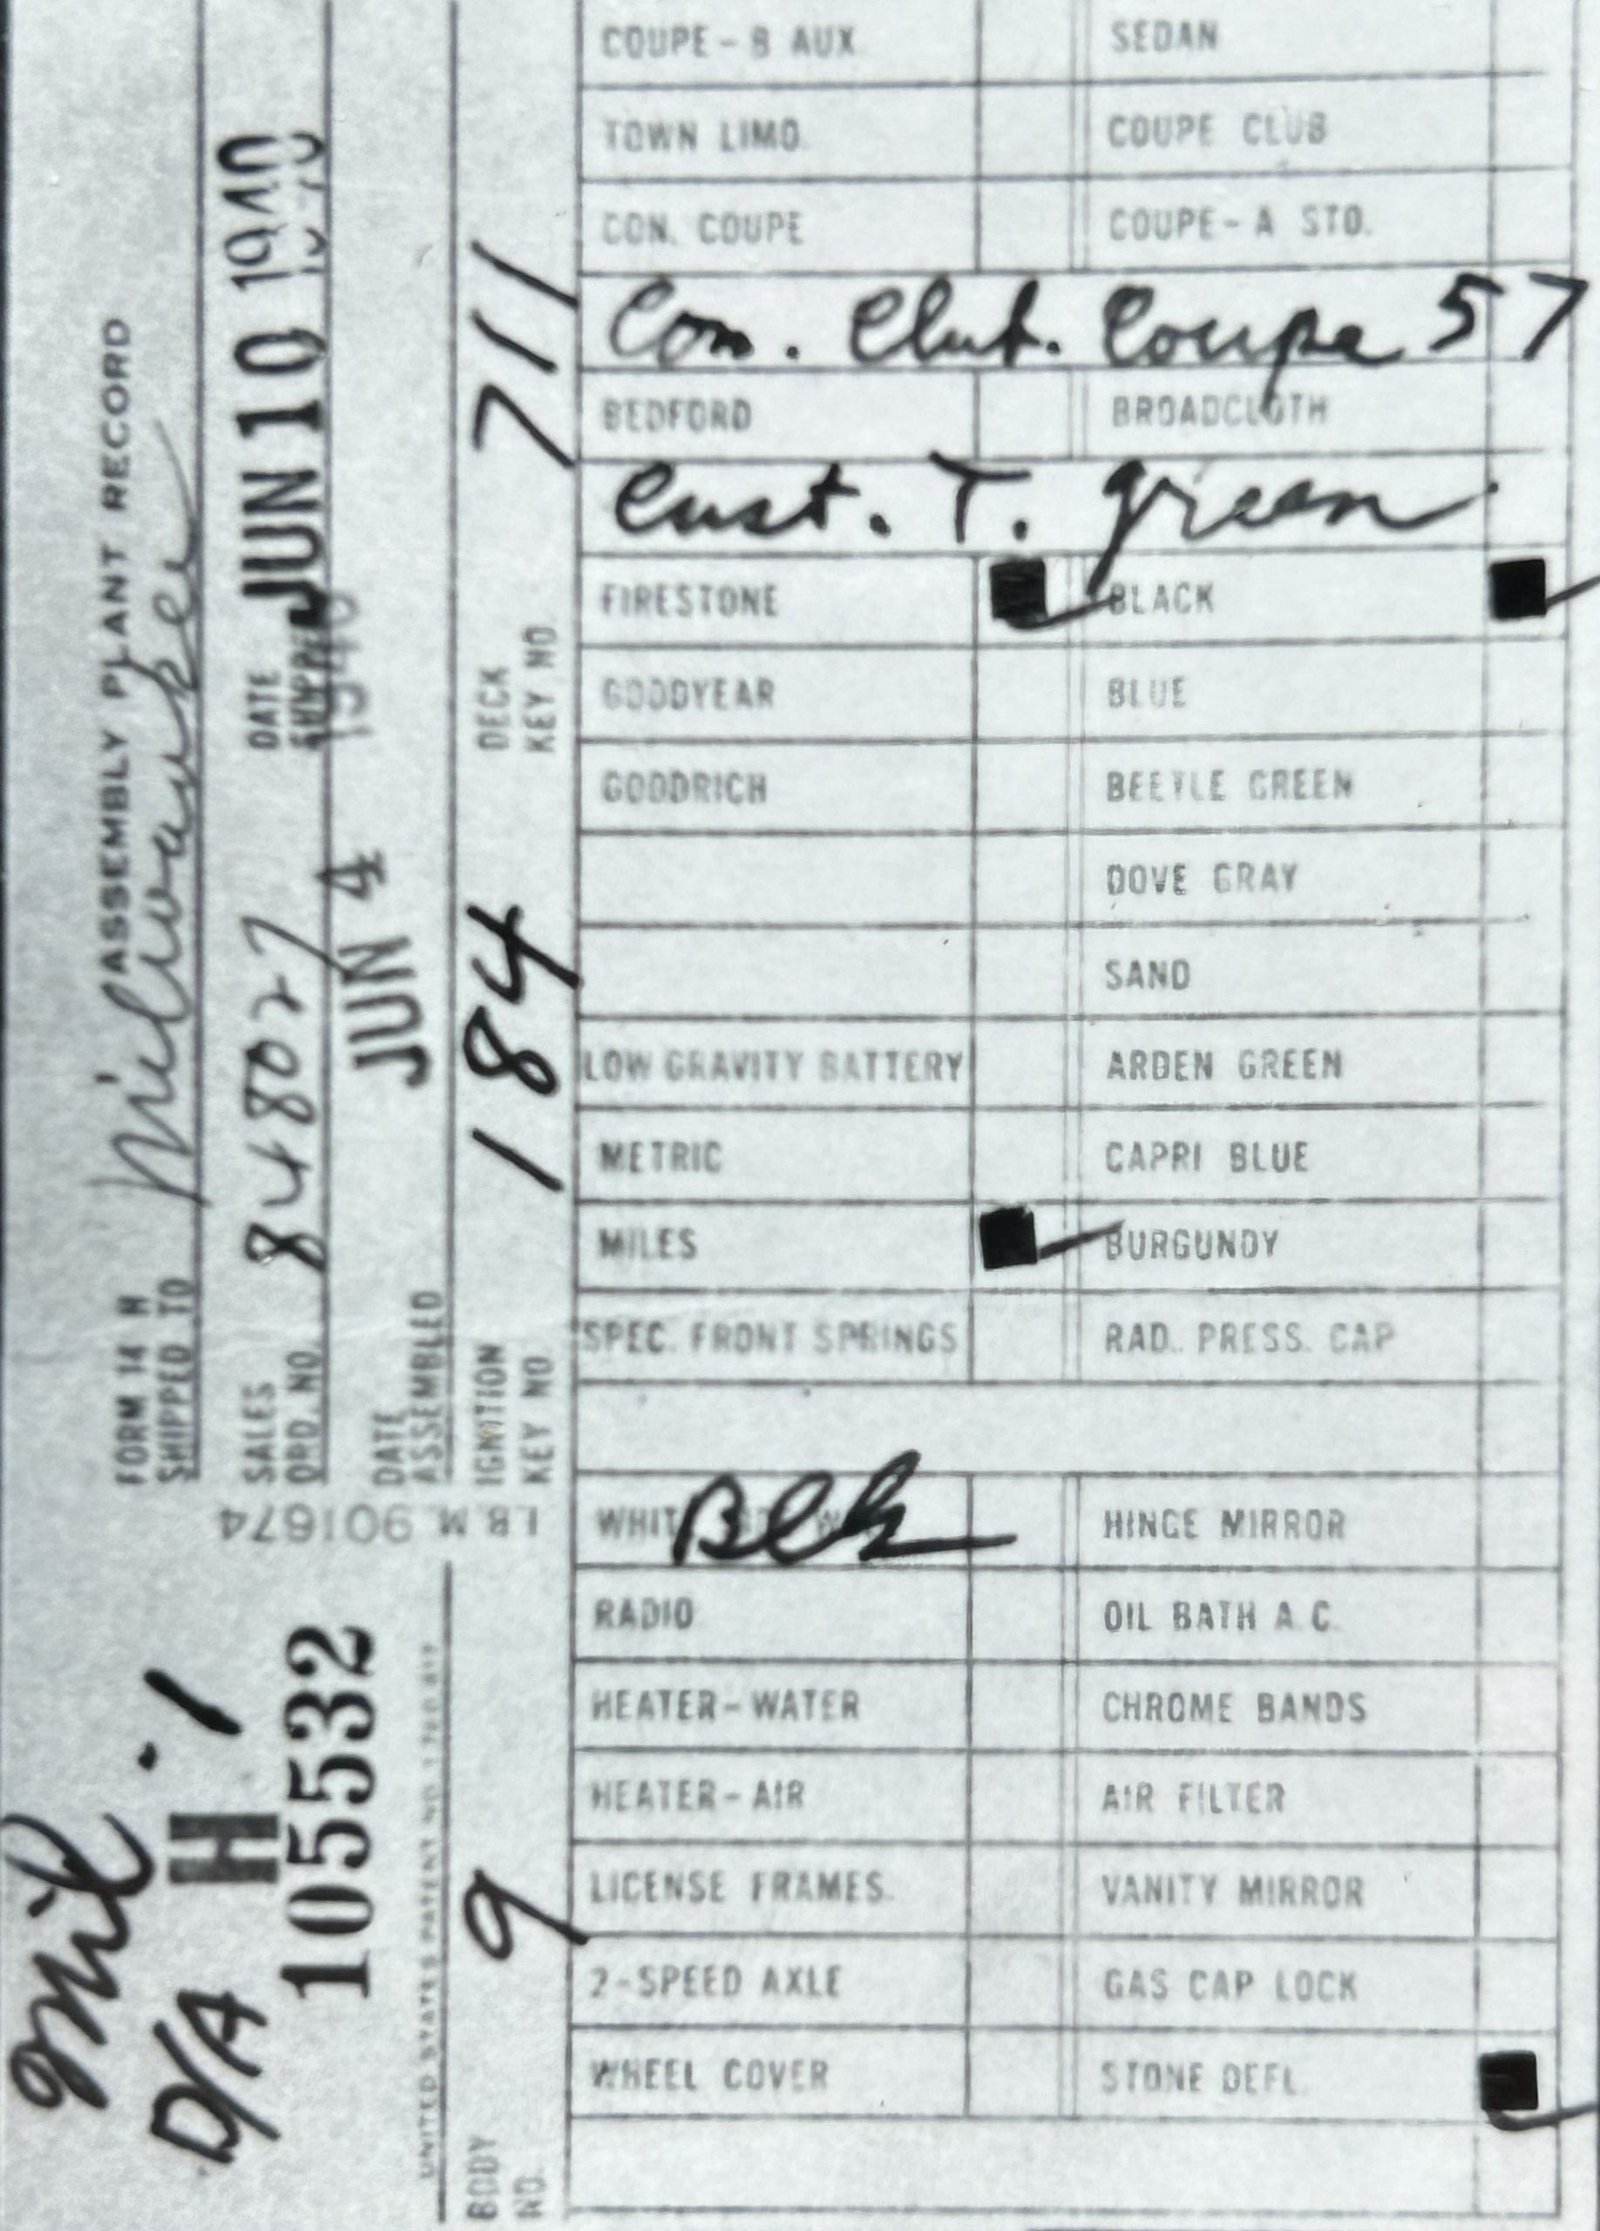 FORM 14 H ASSEMBLY PLANT RECORD
SHIPPED TO Milwaukee
SALES ORD. NO. 848027
DATE SHIPPED JUN 10 1940
DATE ASSEMBLED JUN 4 1940
IGNITION KEY NO. 184
DECK KEY NO. 711
I.B.M. 901674
Mil - 1
D/A H
105532
UNITED STATES PATENT NO.
BODY NO. 9
COUPE - B AUX. SEDAN
TOWN LIMO. COUPE CLUB
CON. COUPE COUPE - A STO.
Con. Club. Coupe 57
BEDFORD BROADCLOTH
Cust. T. green
FIRESTONE BLACK
GOODYEAR BLUE
GOODRICH BEETLE GREEN
DOVE GRAY
SAND
LOW GRAVITY BATTERY ARDEN GREEN
METRIC CAPRI BLUE
MILES BURGUNDY
SPEC. FRONT SPRINGS RAD. PRESS. CAP
Blk HINGE MIRROR
RADIO OIL BATH A.C.
HEATER - WATER CHROME BANDS
HEATER - AIR AIR FILTER
LICENSE FRAMES VANITY MIRROR
2-SPEED AXLE GAS CAP LOCK
WHEEL COVER STONE DEFL.